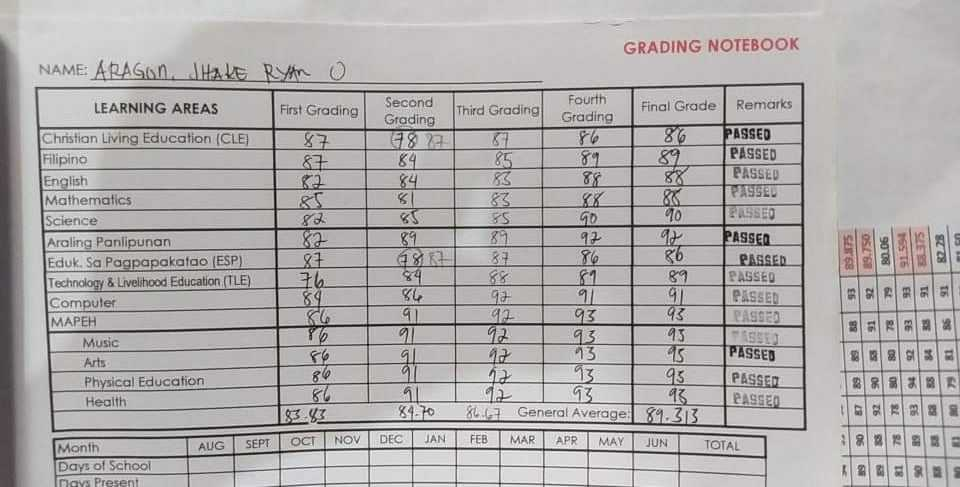 GRADING NOTEBOOK
NAME: ARAGON, JHAKE RYAN O
LEARNING AREAS First Grading Second Grading Third Grading Fourth Grading Final Grade Remarks
Christian Living Education (CLE) 87 78 87 87 86 86 PASSED
Filipino 87 84 85 89 89 PASSED
English 82 84 83 88 88 PASSED
Mathematics 85 81 83 88 88 PASSED
Science 82 85 85 90 90 PASSED
Araling Panlipunan 82 89 89 92 92 PASSED
Eduk. Sa Pagpapakatao (ESP) 87 78 87 87 86 86 PASSED
Technology & Livelihood Education (TLE) 76 84 88 89 89 PASSED
Computer 89 86 92 91 91 PASSED
MAPEH 86 91 92 93 93 PASSED
Music 86 91 92 93 93 PASSED
Arts 86 91 92 93 93 PASSED
Physical Education 86 91 92 93 93 PASSED
Health 86 91 92 93 93 PASSED
83.83 84.70 86.67 General Average: 89.313
Month AUG SEPT OCT NOV DEC JAN FEB MAR APR MAY JUN TOTAL
Days of School
Days Present
89.875
89.750
80.06
91.594
88.375
82.28